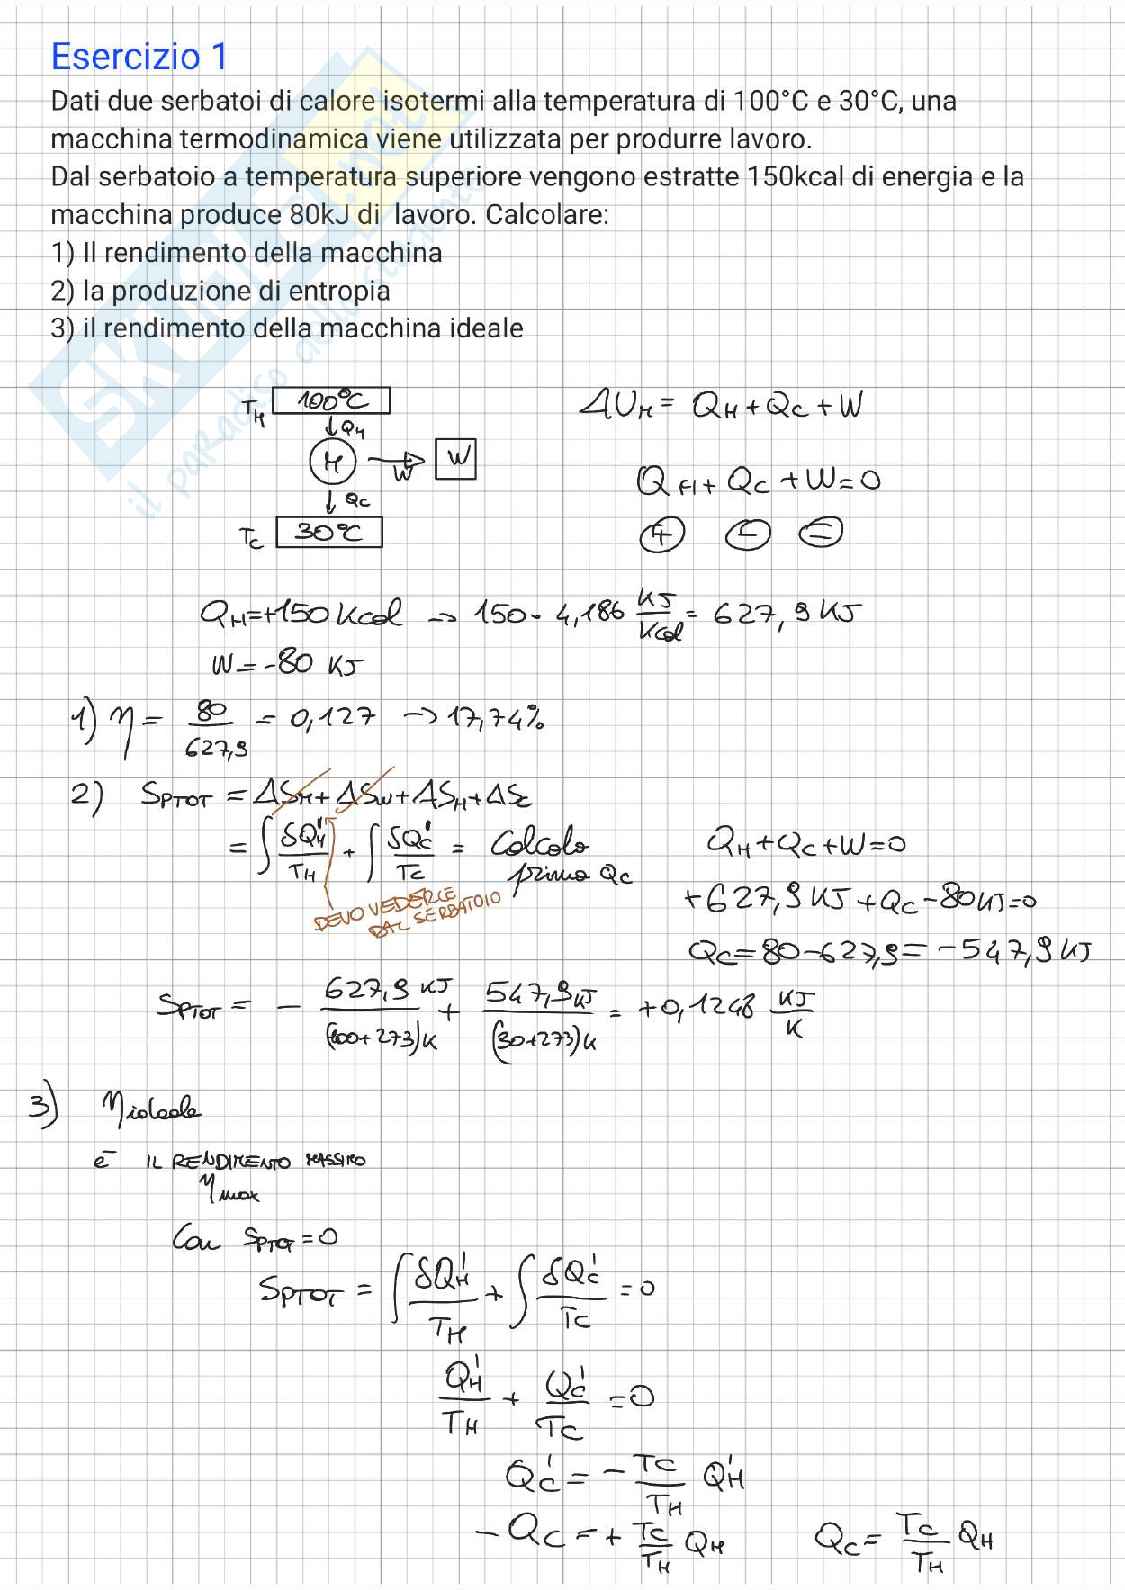 Esercizio 1
Dati due serbatoi di calore isotermi alla temperatura di 100°C e 30°C, una
macchina termodinamica viene utilizzata per produrre lavoro.
Dal serbatoio a temperatura superiore vengono estratte 150kcal di energia e la
macchina produce 80kJ di lavoro. Calcolare:
1) Il rendimento della macchina
2) la produzione di entropia
3) il rendimento della macchina ideale
SKUOLA.net
il paradiso dello studente
TH 100°C
↓QH
M → W W
↓ QC
TC 30°C
ΔUM = QH + QC + W
QH + QC + W = 0
+ - -
QH = +150 Kcal → 150 · 4,186 KJ/Kcal = 627,9 KJ
W = -80 KJ
1) η = 80/627,9 = 0,127 → 17,74%
2) SPTOT = ΔSM + ΔSW + ΔSH + ΔSC
= ∫ δQ'H/TH + ∫ δQ'C/TC = Calcolo prima QC
DEVO VEDERLE
DAL SERBATOIO
QH + QC + W = 0
+627,9 KJ + QC - 80 KJ = 0
QC = 80 - 627,9 = -547,9 KJ
SPTOT = - 627,9 KJ/(100+273)K + 547,9 KJ/(30+273)K = +0,1248 KJ/K
3) ηideale
è IL RENDIMENTO MASSIMO
ηmax
Con SPTOT = 0
SPTOT = ∫ δQ'H/TH + ∫ δQ'C/TC = 0
Q'H/TH + Q'C/TC = 0
Q'C = - TC/TH Q'H
-QC = + TC/TH QH QC = TC/TH QH